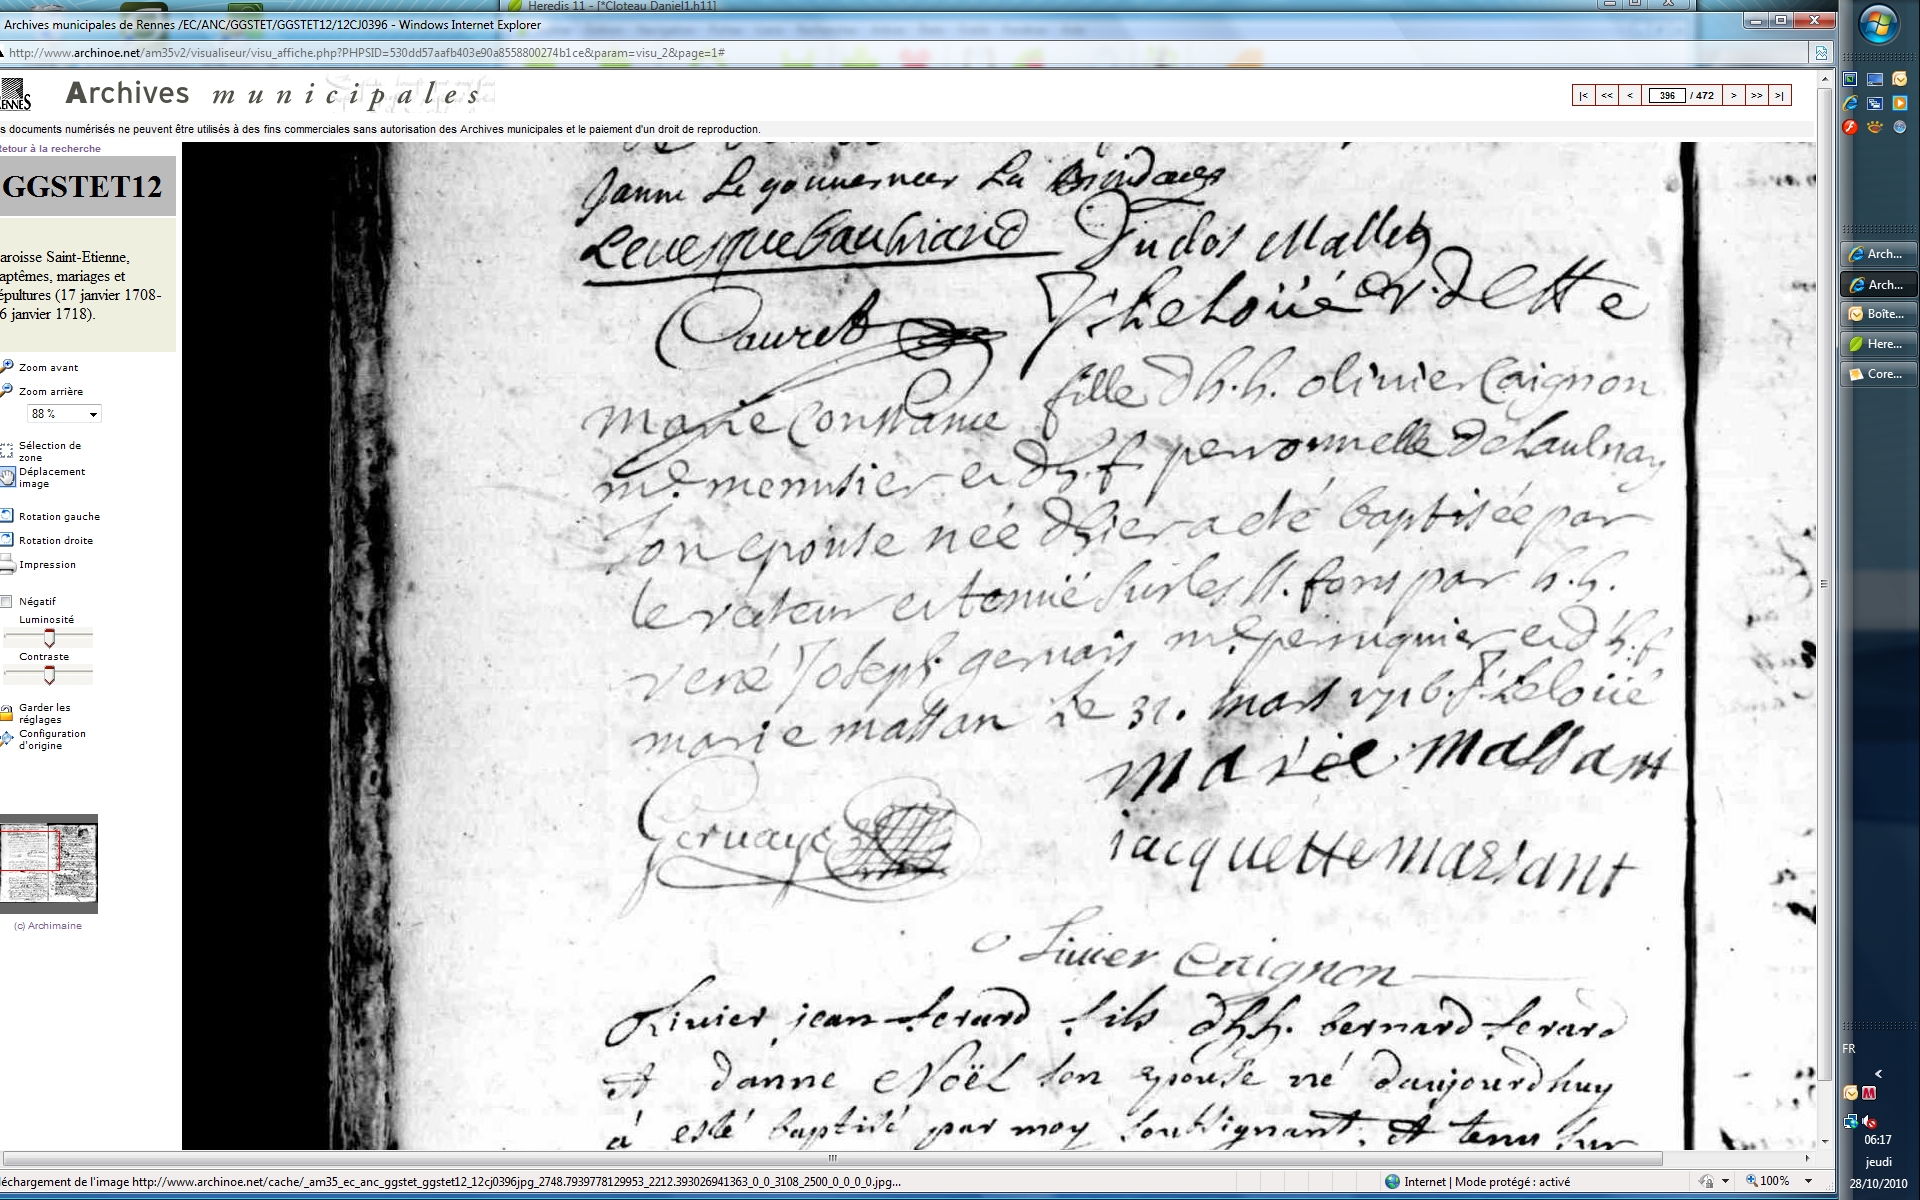 Heredis 11 - [*Cloteau Daniel1.h11]
Archives municipales de Rennes /EC/ANC/GGSTET/GGSTET12/12CJ0396 - Windows Internet Explorer
http://www.archinoe.net/am35v2/visualiseur/visu_affiche.php?PHPSID=530dd57aafb403e90a8558800274b1ce&param=visu_2&page=1#
RENNES
Archives municipales
|< << < 396 / 472 > >> >|
s documents numérisés ne peuvent être utilisés à des fins commerciales sans autorisation des Archives municipales et le paiement d'un droit de reproduction.
Retour à la recherche
GGSTET12
aroisse Saint-Etienne,
aptêmes, mariages et
épultures (17 janvier 1708-
6 janvier 1718).
Zoom avant
Zoom arrière
88 %
Sélection de
zone
Déplacement
image
Rotation gauche
Rotation droite
Impression
Négatif
Luminosité
Contraste
Garder les
réglages
Configuration
d'origine
(c) Archimaine
Janne Le gouuerneur La
Judos Mallet
Cauret
marie Constance fille d'h.h. oliuier Caignon
me. menusier et d'h.f. perronnelle de Laulnay
son epouse née d'hier a eté baptisée par
le recteur et tenue sur les sts. fons par h.h.
rené Joseph geruais me. perruquier et d'h.f.
marie massan le 31. mars
marie massant
Geruaye
iacquette mariant
oliuier Caignon
Oliuier jean ferard fils d'h.h. bernard ferard
et danne Noël son epouse né daujourdhuy
à esté baptisé par moy soussignant. et tenu sur
Arch...
Arch...
Boîte...
Here...
Core...
FR
06:17
jeudi
28/10/2010
échargement de l'image http://www.archinoe.net/cache/_am35_ec_anc_ggstet_ggstet12_12cj0396jpg_2748.7939778129953_2212.393026941363_0_0_3108_2500_0_0_0_0.jpg...
Internet | Mode protégé : activé
100%